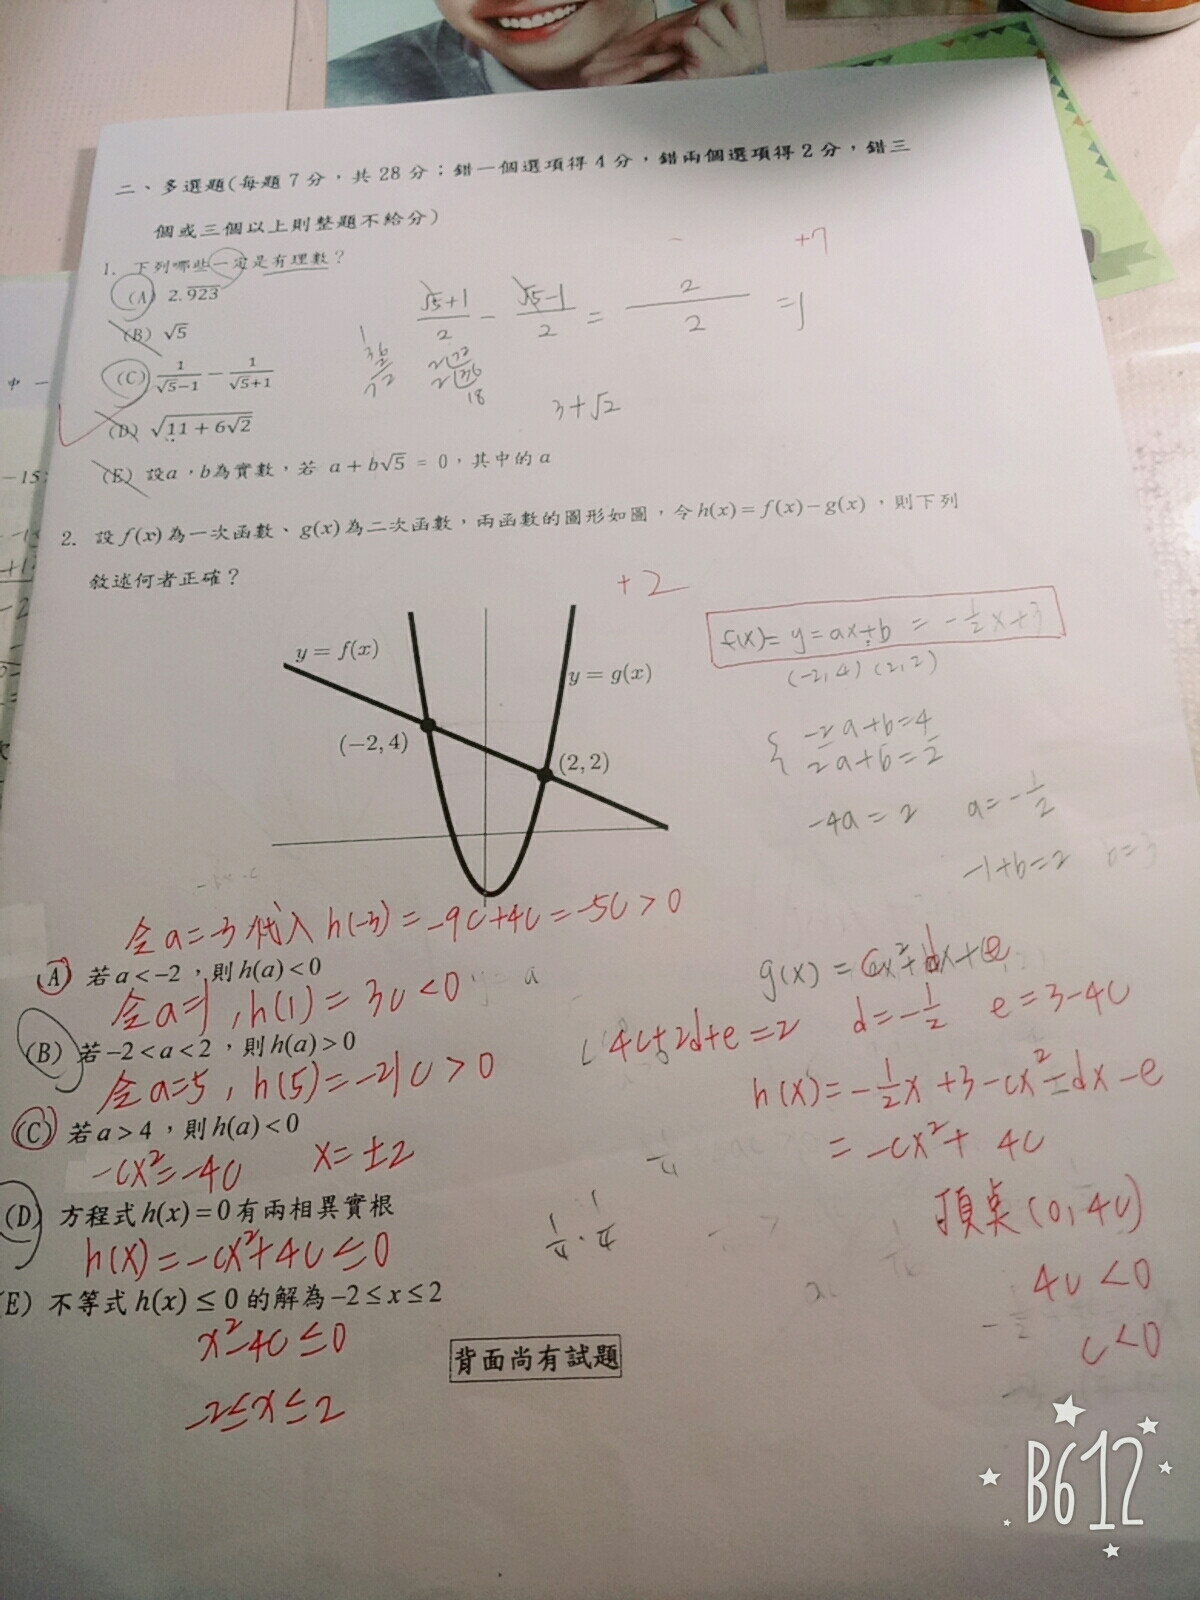 二、多選題(每題 7 分，共 28 分；錯一個選項得 4 分，錯兩個選項得 2 分，錯三
個或三個以上則整題不給分)
+7
1. 下列哪些一定是有理數？
(A) 2.\overline{923}
(B) √5
(C) 1/(√5−1) − 1/(√5+1)
(D) √(11 + 6√2)
(E) 設a，b為實數，若 a + b√5 = 0，其中的 a
(√5+1)/2 - (√5-1)/2 = 2/2 = 1
2 72
2 36
18
3+√2
2. 設 f(x) 為一次函數、g(x) 為二次函數，兩函數的圖形如圖，令 h(x) = f(x) − g(x)，則下列
敘述何者正確？
+2
y = f(x)
y = g(x)
(−2, 4)
(2, 2)
f(x)= y = ax+b = -1/2x+3
(-2,4) (2,2)
{ -2a+b=4
2a+b=2
-4a=2 a=-1/2
-1+b=2 b=3
令a=-3代入 h(-3)=-9c+4c=-5c>0
(A) 若 a < −2，則 h(a) < 0
令a=1, h(1)=3c<0
(B) 若 −2 < a < 2，則 h(a) > 0
令a=5, h(5)=-21c>0
(C) 若 a > 4，則 h(a) < 0
-cx²=-4c x=±2
(D) 方程式 h(x) = 0 有兩相異實根
h(x)=-cx²+4c≤0
(E) 不等式 h(x) ≤ 0 的解為 −2 ≤ x ≤ 2
x²-4c≤0
-2≤x≤2
g(x)=cx²+dx+e
4c+2d+e=2 d=-1/2 e=3-4c
h(x)=-1/2x+3-cx²-dx-e
=-cx²+4c
頂桌(0,4c)
4c<0
c<0
背面尚有試題
B612